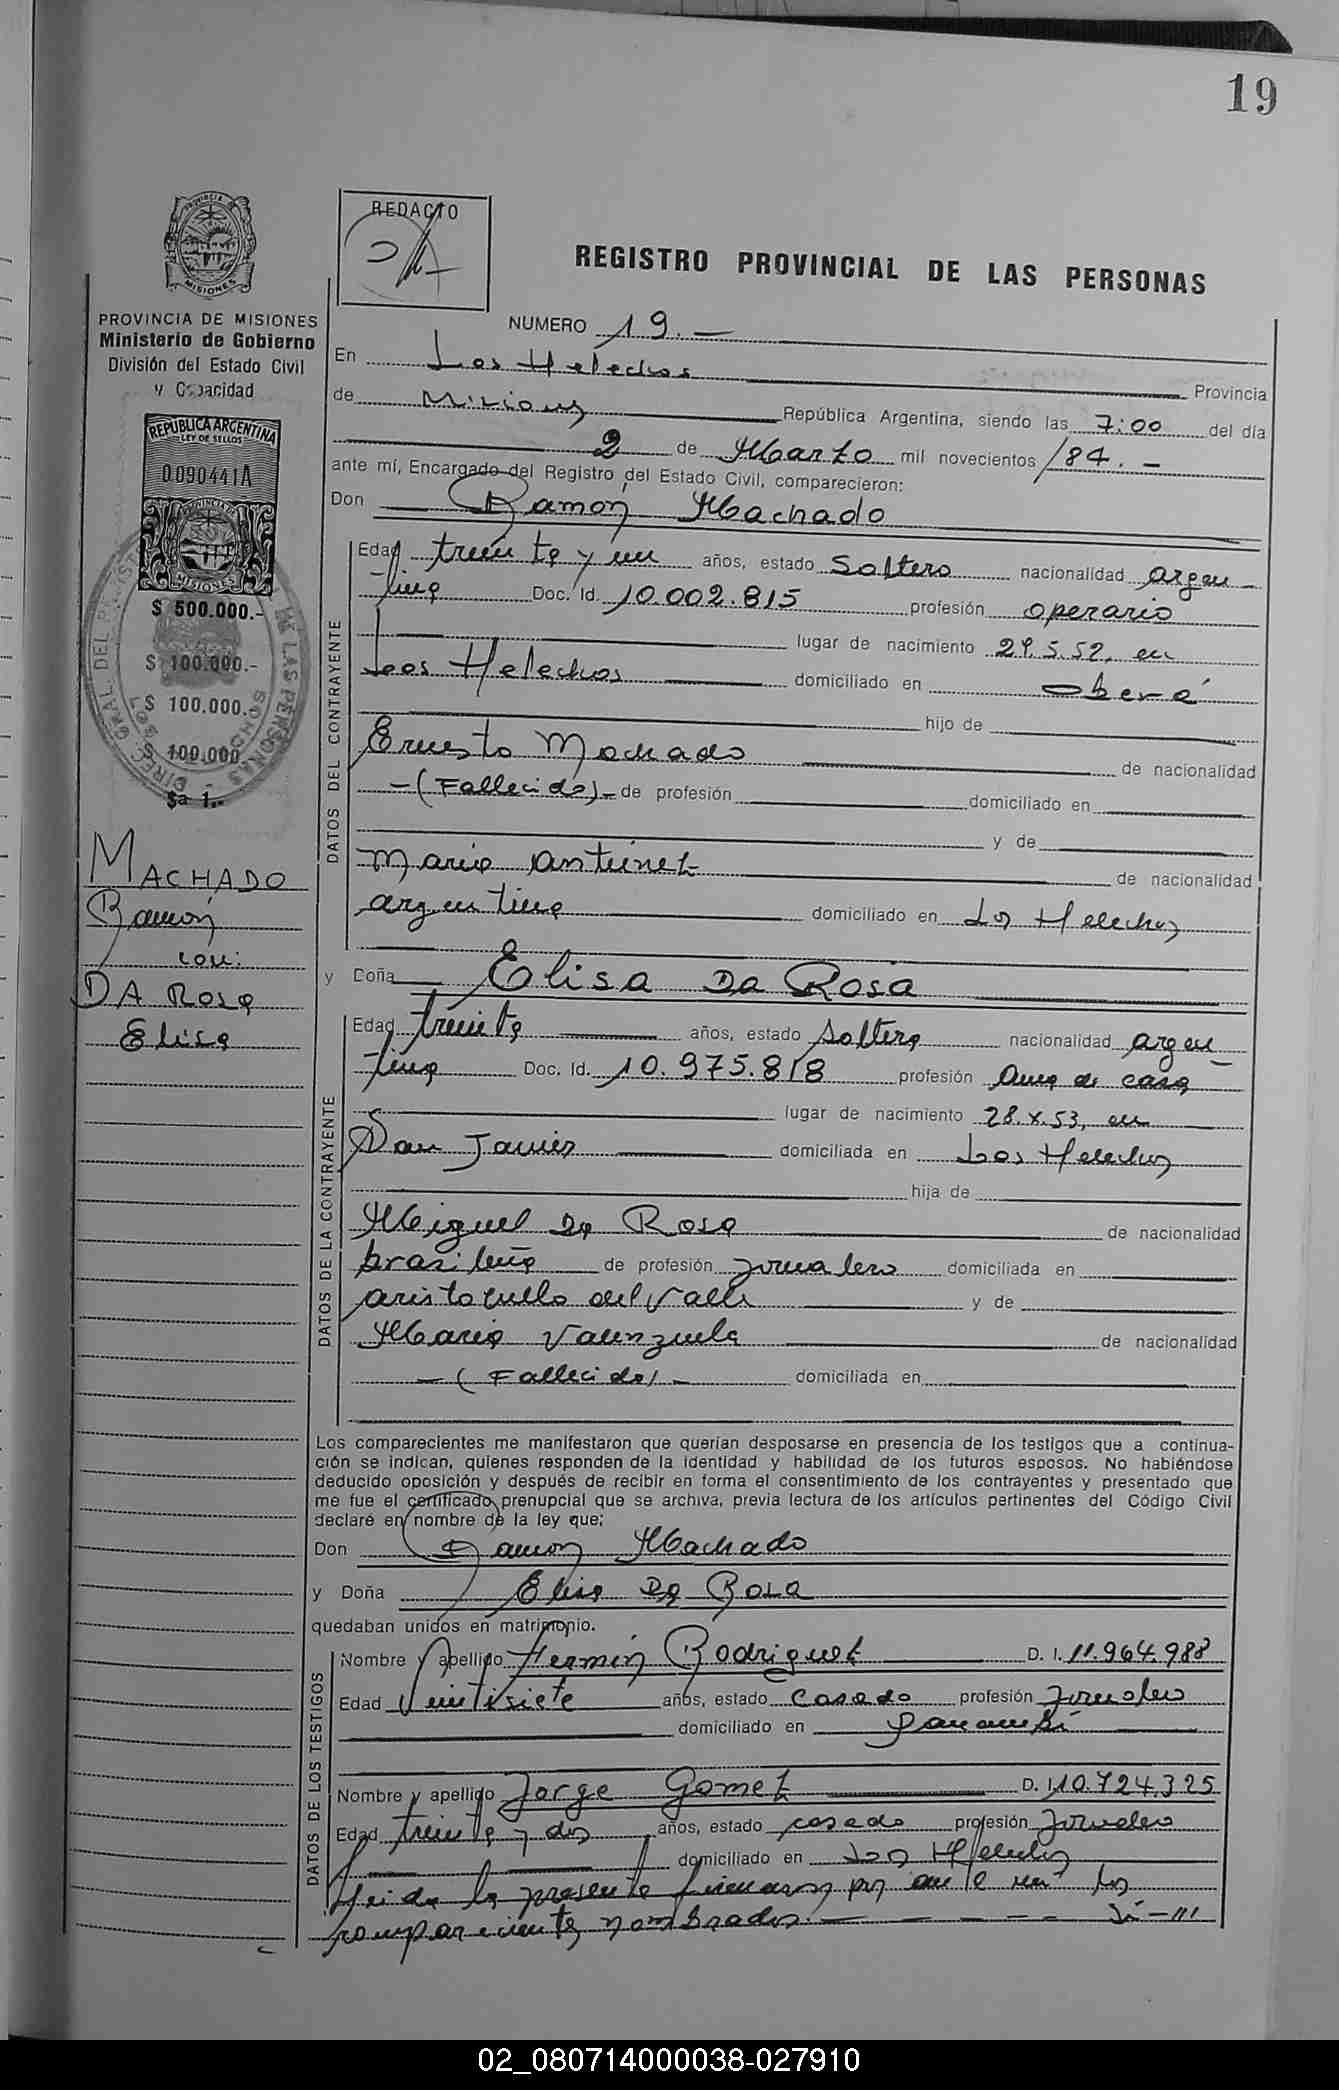 19
PROVINCIA DE
MISIONES
REDACTO
REGISTRO PROVINCIAL DE LAS PERSONAS
PROVINCIA DE MISIONES
Ministerio de Gobierno
División del Estado Civil
y Capacidad
REPUBLICA ARGENTINA
LEY DE SELLOS
0.090441A
PROVINCIA DE
MISIONES
$ 500.000.-
$ 100.000.-
$ 100.000.-
$ 100.000
$a 1.-
MACHADO
Ramón
con:
DA Rosa
Elisa
NUMERO 19.-
En Los Helechos Provincia
de Misiones República Argentina, siendo las 7:00 del día
2 de Marzo mil novecientos /84.-
ante mí, Encargado del Registro del Estado Civil, comparecieron:
Don Ramón Machado
DATOS DEL CONTRAYENTE
Edad treinta y un años, estado Soltero nacionalidad argen-
tina Doc. Id. 10.002.815 profesión operario
lugar de nacimiento 29.5.52, en
Los Helechos domiciliado en Oberá
hijo de
Ernesto Machado de nacionalidad
-(Fallecido)- de profesión domiciliado en
y de
Maria Antunez de nacionalidad
argentina domiciliado en Los Helechos
y Doña Elisa Da Rosa
DATOS DE LA CONTRAYENTE
Edad treinta años, estado Soltera nacionalidad argen-
tina Doc. Id. 10.975.818 profesión Ama de casa
lugar de nacimiento 28.X.53, en
San Javier domiciliada en Los Helechos
hija de
Miguel Da Rosa de nacionalidad
brasileña de profesión jornalero domiciliada en
aristobulo del Valle y de
Maria Valenzuela de nacionalidad
-(Fallecida)- domiciliada en
Los comparecientes me manifestaron que querían desposarse en presencia de los testigos que a continua-
ción se indican, quienes responden de la identidad y habilidad de los futuros esposos. No habiéndose
deducido oposición y después de recibir en forma el consentimiento de los contrayentes y presentado que
me fue el certificado prenupcial que se archiva, previa lectura de los artículos pertinentes del Código Civil
declaré en nombre de la ley que:
Don Ramón Machado
y Doña Elisa Da Rosa
quedaban unidos en matrimonio.
DATOS DE LOS TESTIGOS
Nombre y apellido Hermín Rodriguez D. I. 11.964.988
Edad Veintisiete años, estado Casado profesión Jornalero
domiciliado en Panambí
Nombre y apellido Jorge Gomez D. I. 10.724.325
Edad treinta y dos años, estado casado profesión Jornalero
domiciliado en Los Helechos
Leida la presente firmaron por ante mí los
comparecientes nombrados.-
02_080714000038-027910